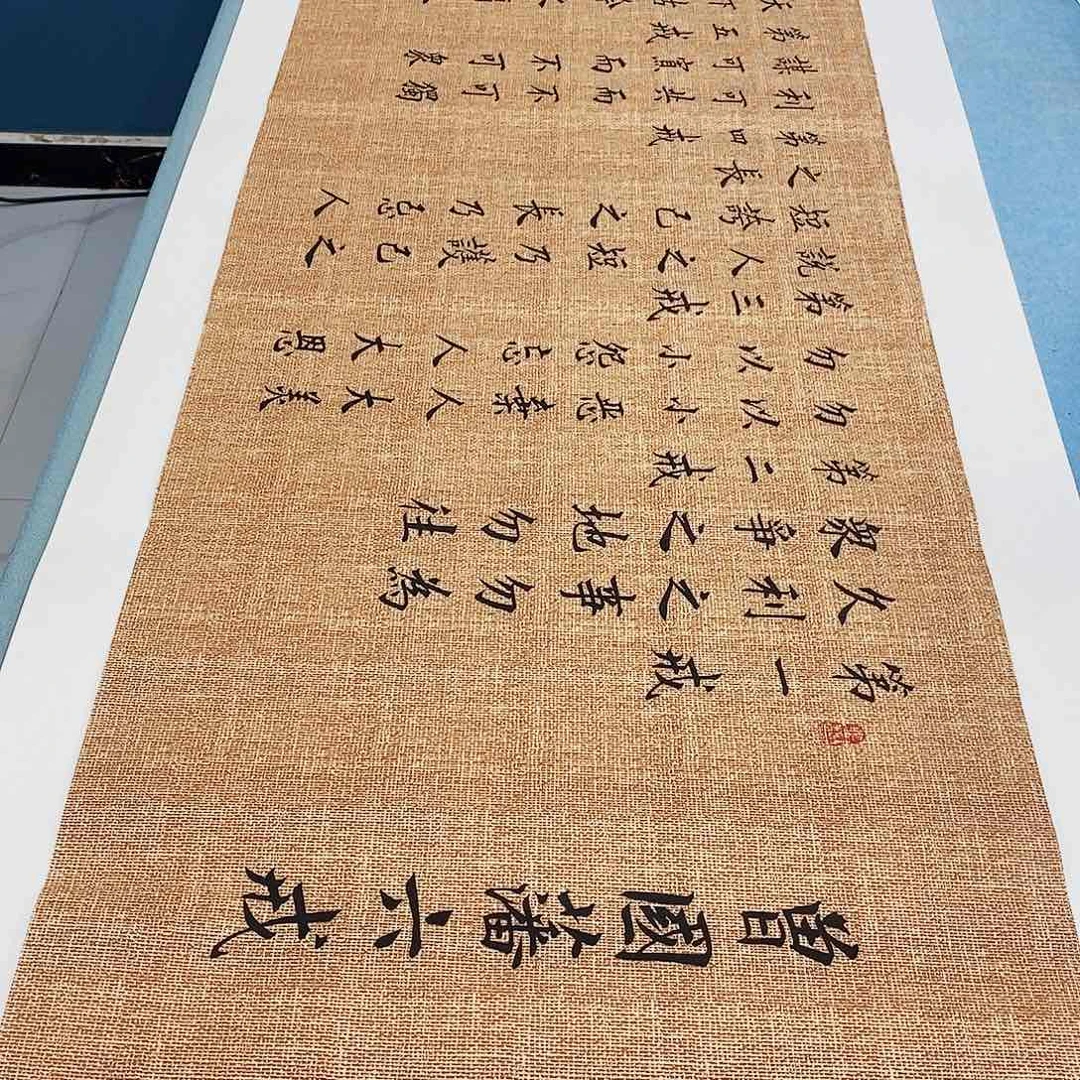 曾國藩六戒
第一戒
久利之事勿為
衆爭之地勿往
第二戒
勿以小惡棄人大義
勿以小怨忘人大恩
第三戒
說人之短乃護己之
短誇己之長乃忌人
之長
第四戒
利可共而不可獨
謀可寡而不可衆
第五戒
天下